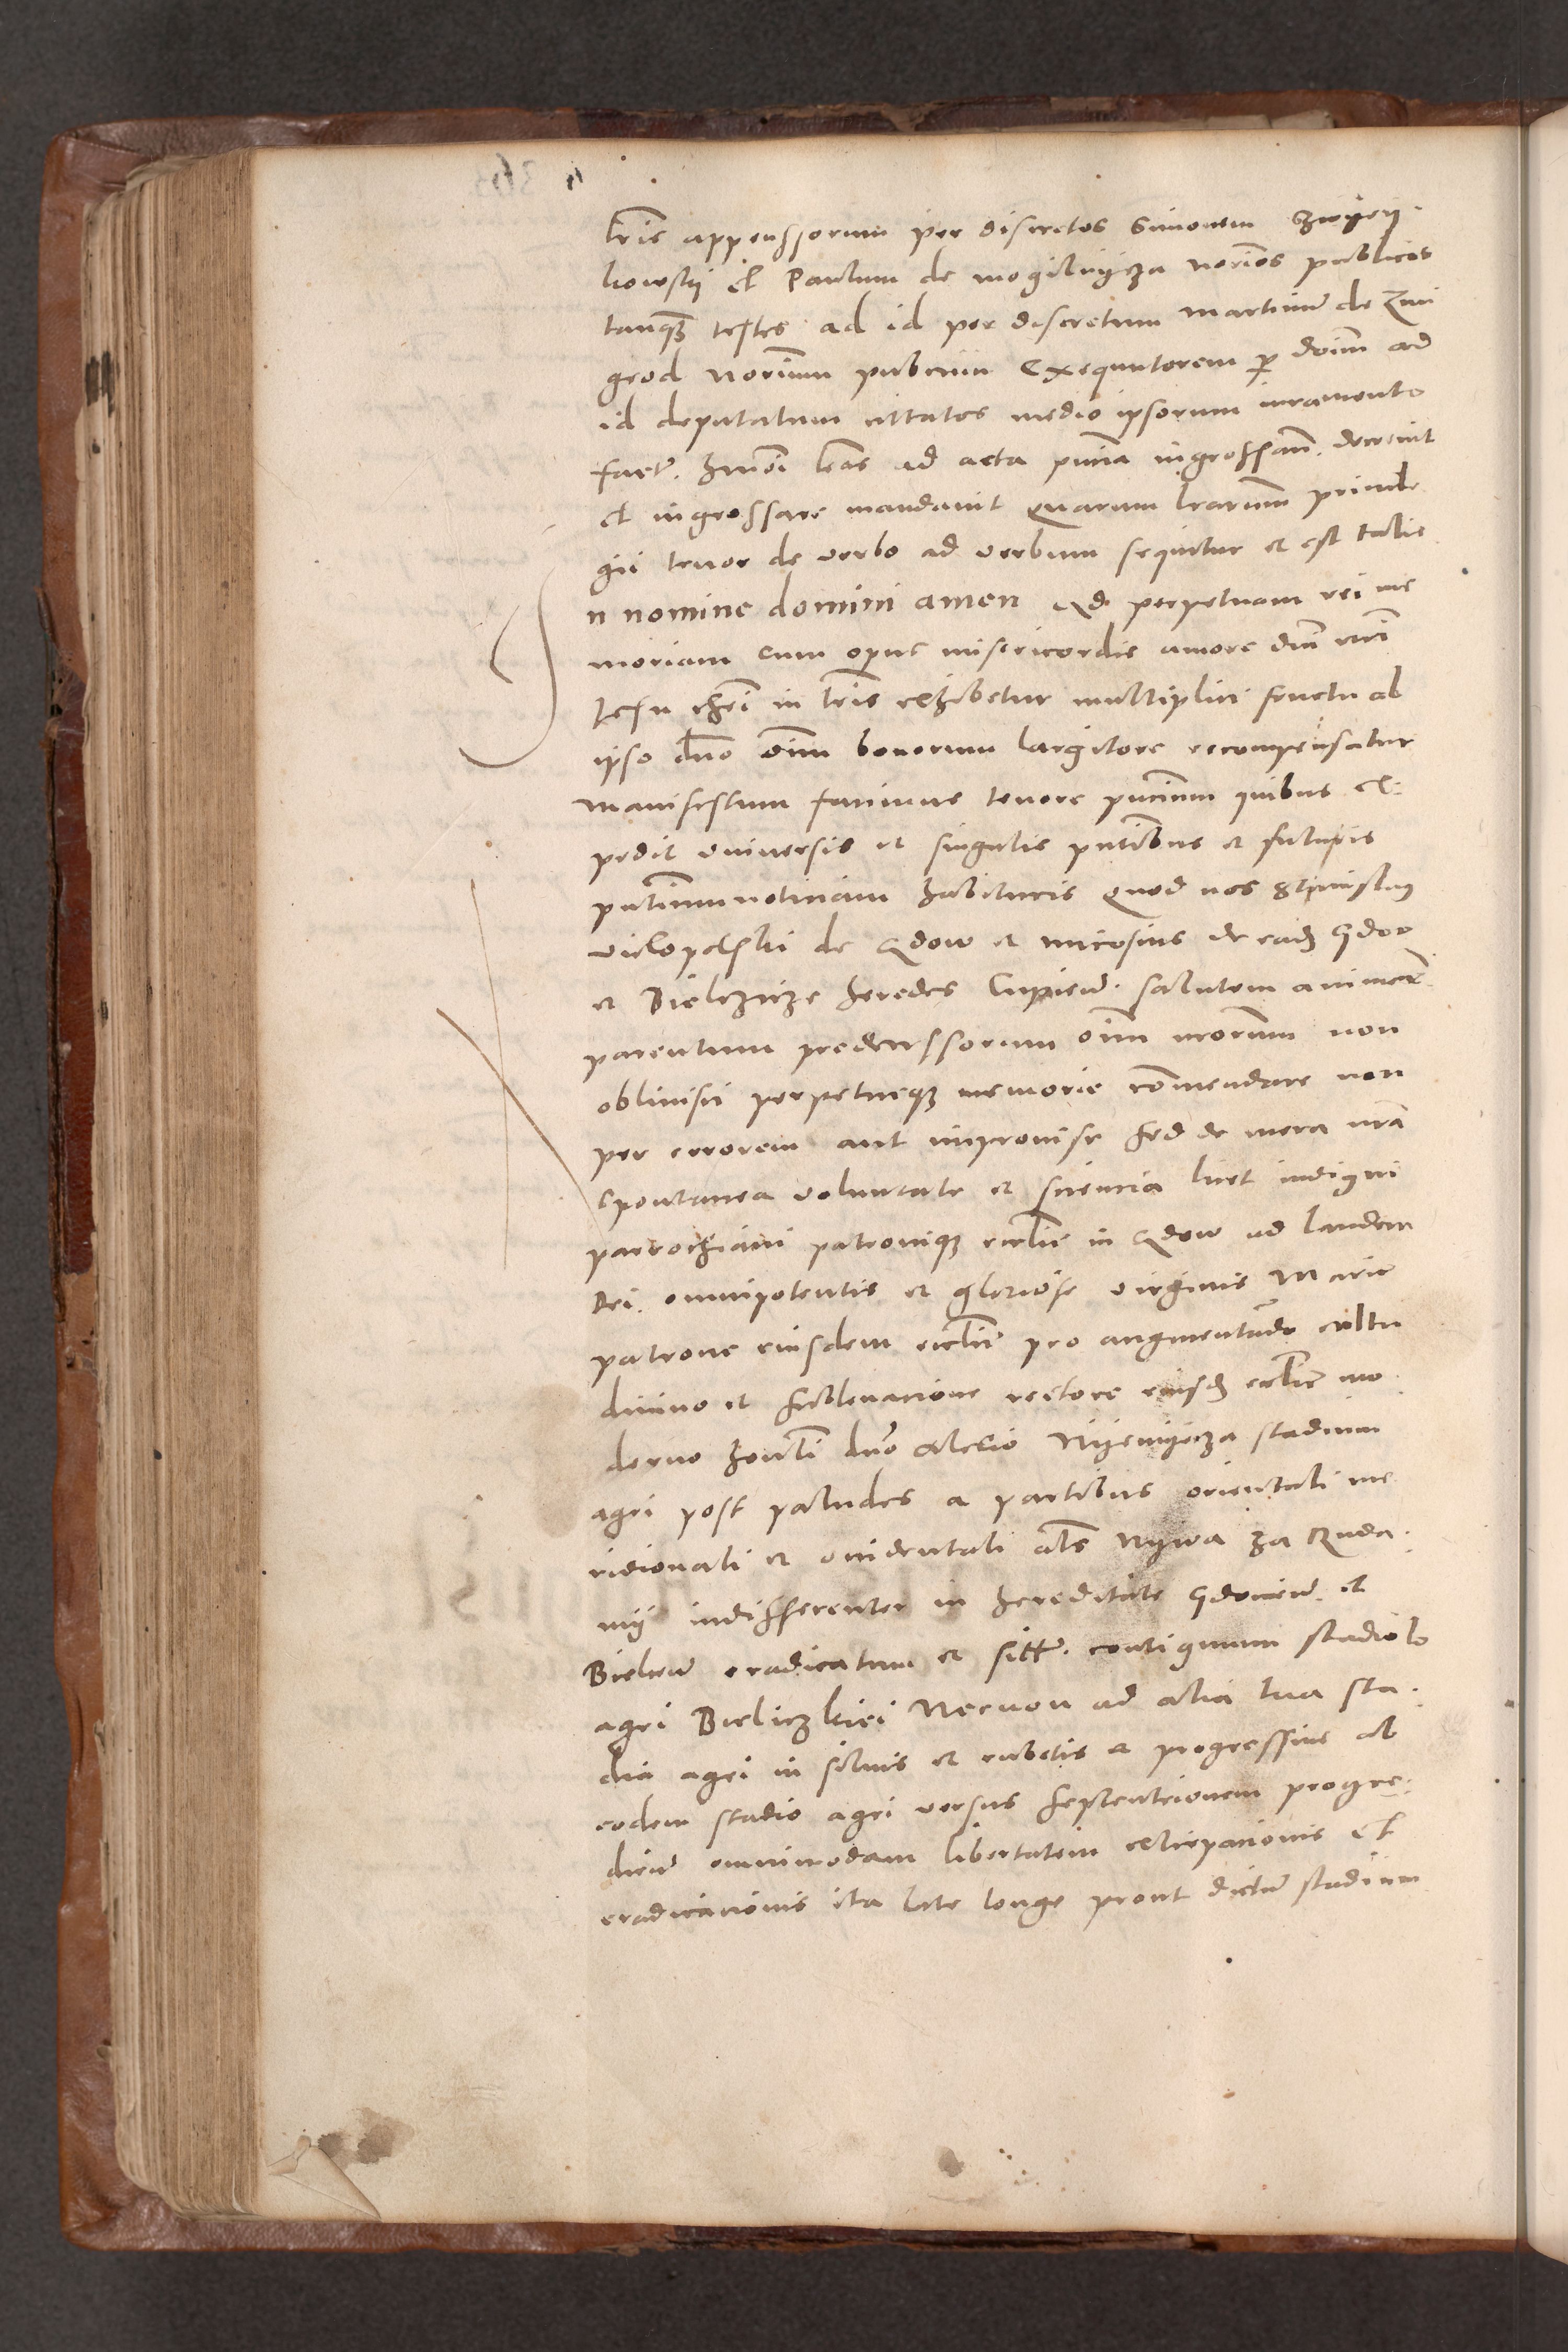 lris appenssorum per discretos Simonem Zwyey
howsky et Paulum de mogilnycza norios publicos
tanquam testes ad id per discretum martinum de Zmi
grod norium publicum Exequutorem per doim ad
id deputatum cittatos medio ipsorum iuramento
fact. hmoi lras ad acta pncia ingrossand. decrevit
et ingrossare mandavit Quarum lrarum privile
gii tenor de verbo ad verbum sequitur et est talis
In nomine domini amen Ad perpetuam rei me
moriam cum opus misericordie amore dni nri
Jesu chri in tris exhibetur multiplici fructu ab
ipso dno oim bonorum largitore recompensatur
manifestum facimus tenore pncium quibus ex
pedit universis et singulis pntibus et futuris
pntium noticiam habituris Quod nos Stanislaus
vielopolski de Gdow et nicosius de eadem Gdow
et Bielczicze heredes Cupien. salutem animarum
parentum predecessorum oim nrorum non
oblivisci perpetueque memorie comendare non
per errorem aut improvise sed de mera nra
spontanea voluntate et sciencia licet indigni
parrochiani patronique ecclie in Gdow ad laudem
Dei omnipotentis et gloriose virginis Marie
patrone eiusdem ecclie pro augmentando cultu
divino et sublevacione rectore eiusdem ecclie mo
derno honli dno Alexio Nyemyecza stadium
agri post paludes a partibus orientali me
ridionali et occidentali als Nywa za Ruda
my indifferenter in hereditate Gdovien. et
Bielcen. eradicatum et situm. contiguum stadiolo
agri Bieliczkiei Necnon ad alia tria sta
dia agri in silvis et rubetis et progressive ab
eodem stadio agri versus septentrionem progre
dien. omnimodam libertatem extirpacionis et
eradicacionis ita late longe prout dictum stadium